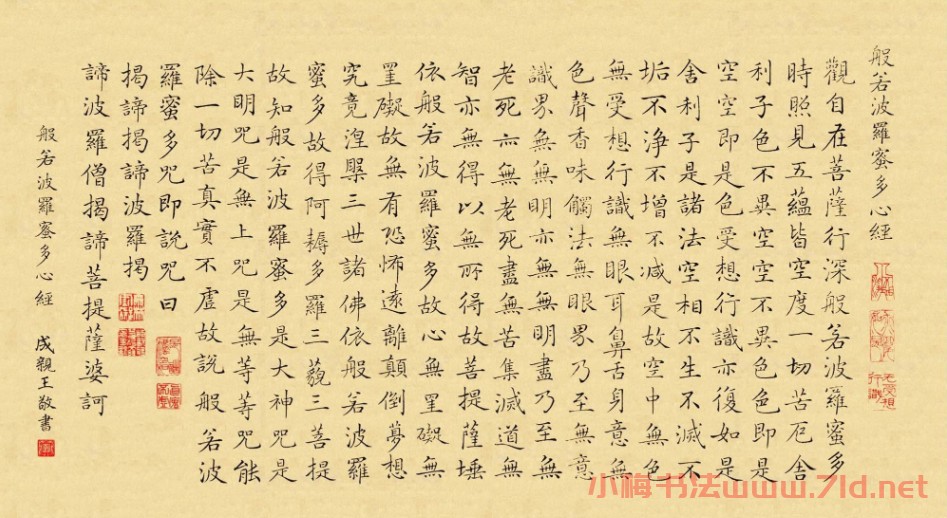 般若波羅蜜多心經
觀自在菩薩行深般若波羅蜜多
時照見五蘊皆空度一切苦厄舍
利子色不異空空不異色色即是
空空即是色受想行識亦復如是
舍利子是諸法空相不生不滅不
垢不淨不增不減是故空中無色
無受想行識無眼耳鼻舌身意無
色聲香味觸法無眼界乃至無意
識界無無明亦無無明盡乃至無
老死亦無老死盡無苦集滅道無
智亦無得以無所得故菩提薩埵
依般若波羅蜜多故心無罣礙無
罣礙故無有恐怖遠離顛倒夢想
究竟涅槃三世諸佛依般若波羅
蜜多故得阿耨多羅三藐三菩提
故知般若波羅蜜多是大神咒是
大明咒是無上咒是無等等咒能
除一切苦真實不虛故說般若波
羅蜜多咒即說咒曰
揭諦揭諦波羅揭
諦波羅僧揭諦菩提薩婆訶
般若波羅蜜多心經 成親王敬書
小梅书法www.7ld.net